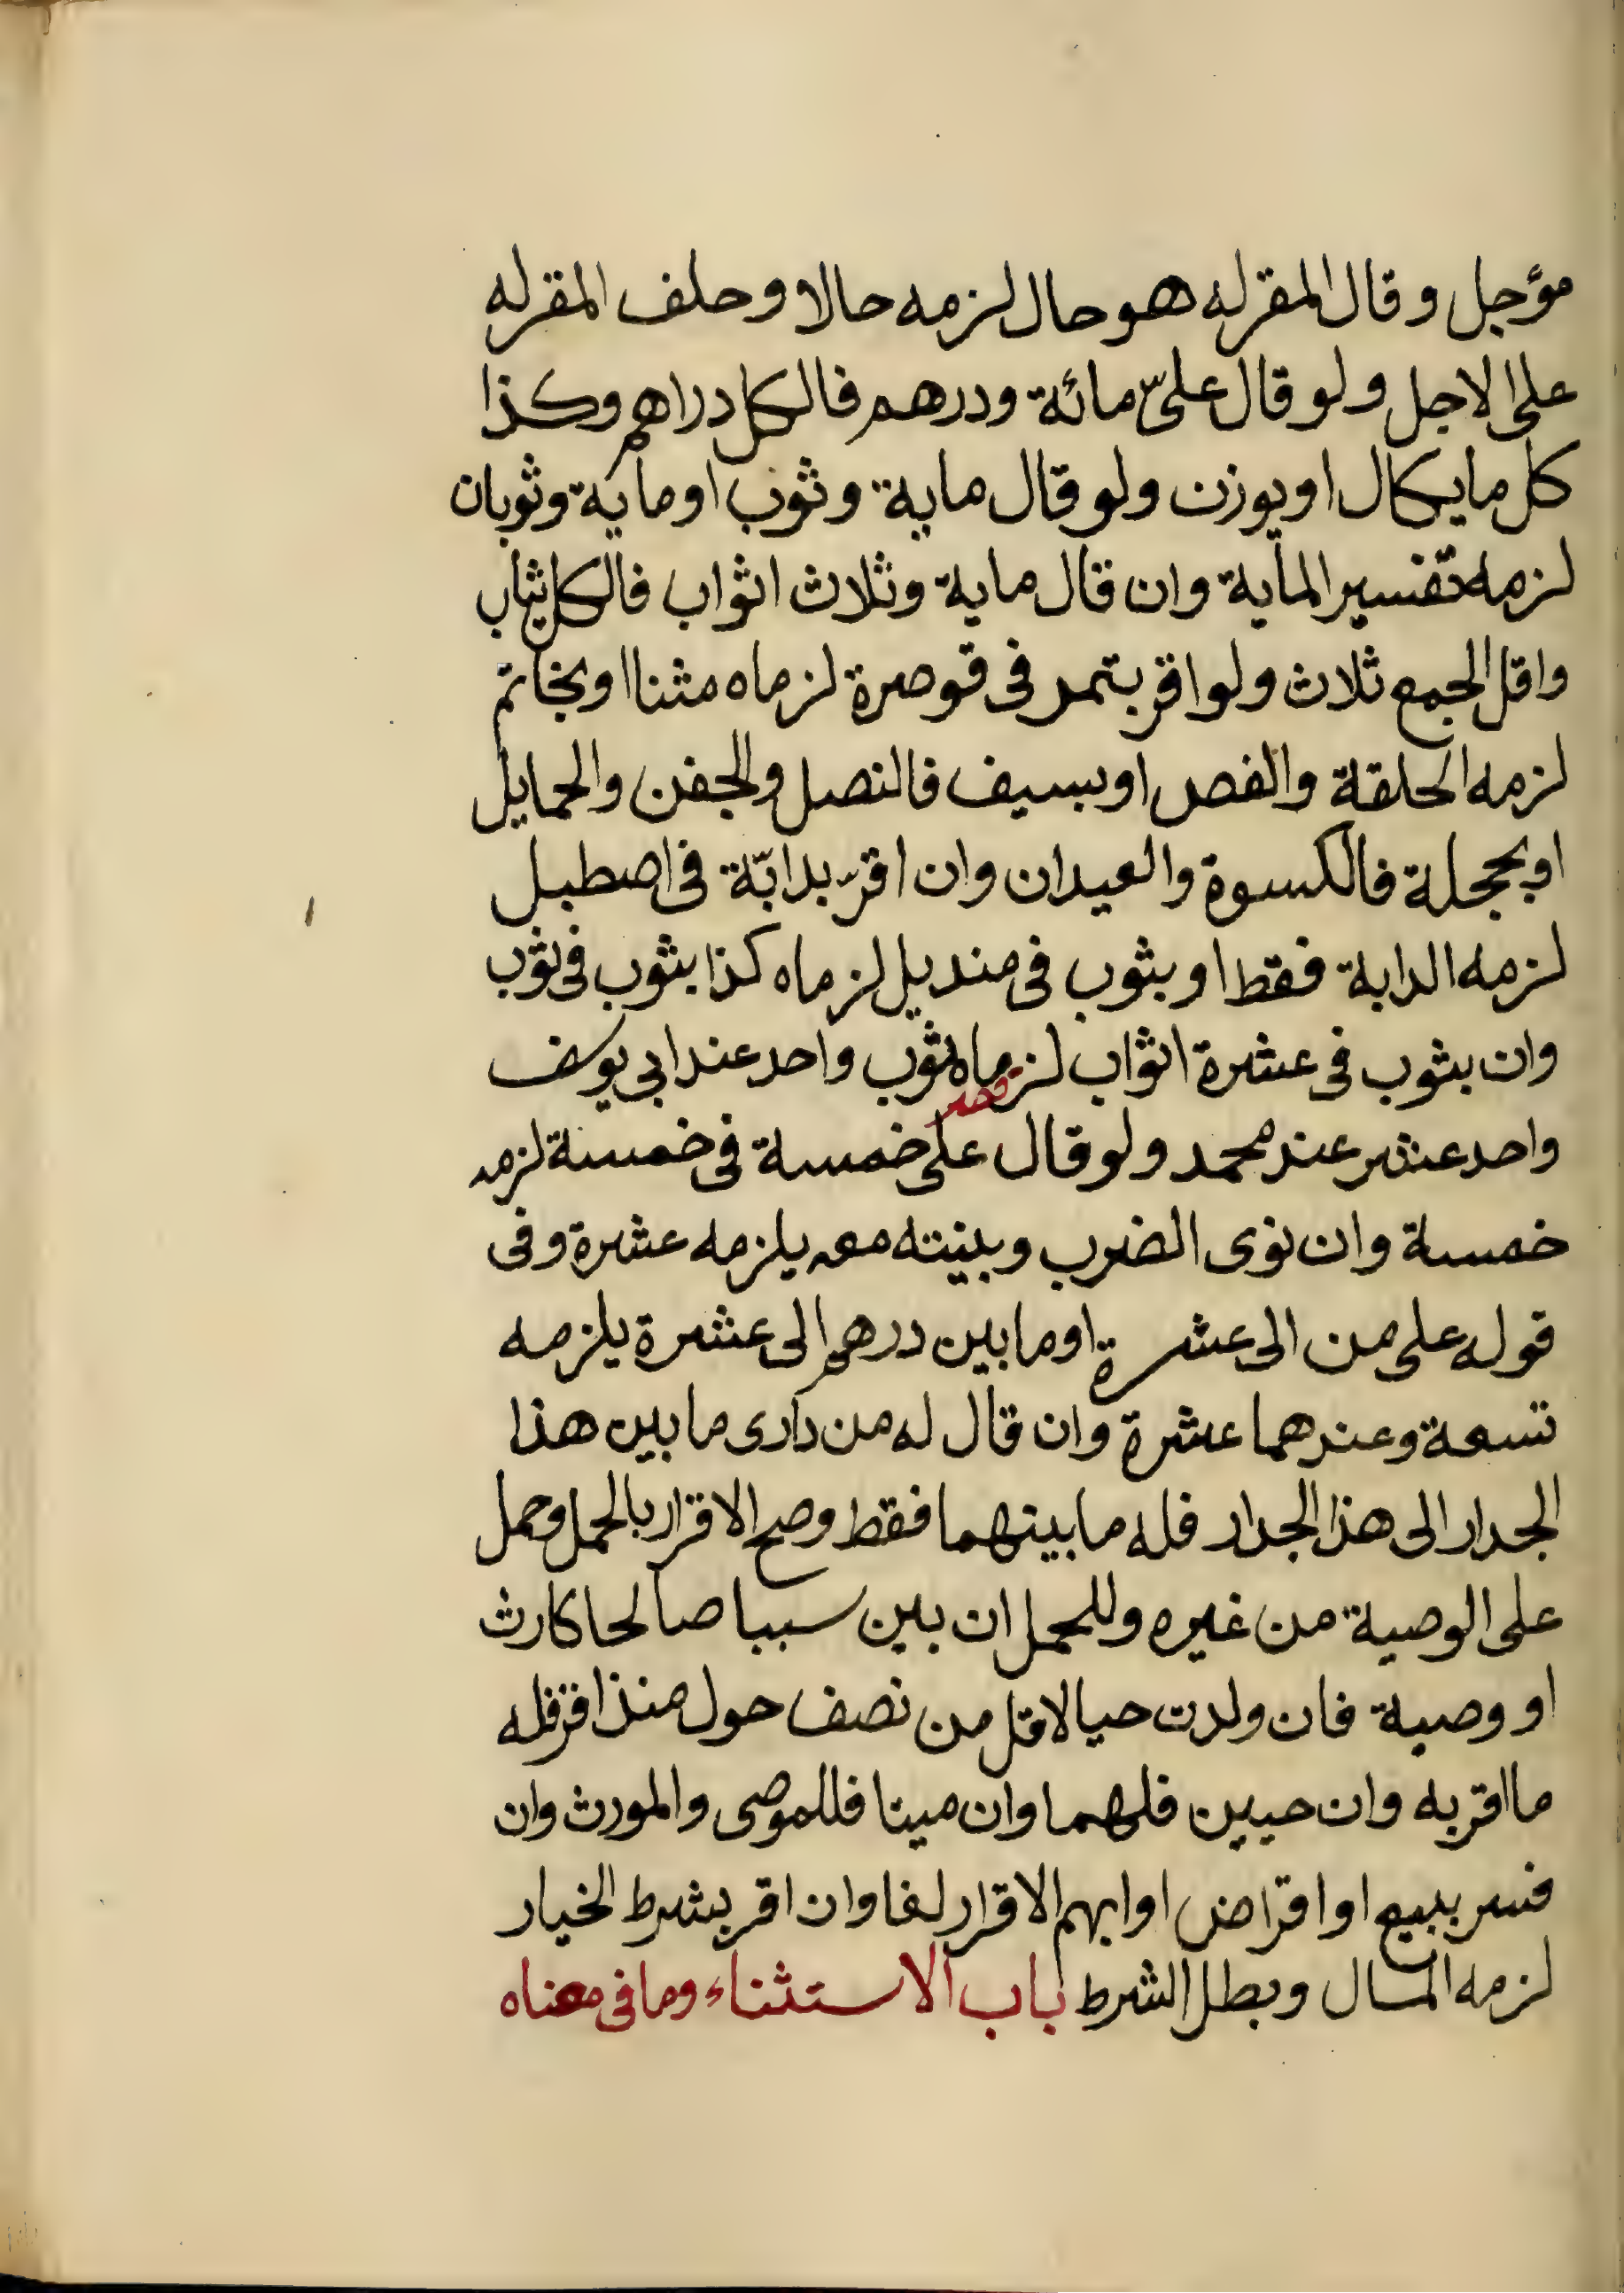 مؤجل وقال المقر له هو حال لزمه حالا وحلف المقر له
على الاجل ولو قال علىّ مائة ودرهم فالكل دراهم وكذا
كل ما يكال او يوزن ولو قال ماية وثوب او ماية وثوبان
لزمه تفسير الماية وان قال ماية وثلاث اثواب فالكل ثياب
واقل الجمع ثلاث ولو اقر بتمر فى قوصرة لزماه مثنا او بخاتم
لزمه الحلقة والفص او بسيف فالنصل والجفن والحمايل
او بحجلة فالكسوة والعيدان وان اقرّ بدابّة فى اصطبل
لزمه الدابة فقط او بثوب فى منديل لزماه كذا بثوب فى ثوب
وان بثوب فى عشرة اثواب لزماه ثوب واحد عند ابى يوسف
واحد عشر عند محمد ولو قال على خمسة فى خمسة لزمه
خمسة وان نوى الضرب وبنيته معه يلزمه عشرة وفى
قوله على من الى عشرة او ما بين درهم الى عشرة يلزمه
تسعة وعندهما عشرة وان قال له من دارى ما بين هذا
الجدار الى هذا الجدار فله ما بينهما فقط وصح الاقرار بالحمل وحمل
على الوصية من غيره وللحمل ان بين سببا صالحا كارث
او وصية فان ولدت حيا لاقل من نصف حول منذ اقر فله
ما اقر به وان حيين فلهما وان ميتا فللموصى والمورث وان
فسر ببيع او اقراض او ابهم الاقرار لغا وان اقر بشرط الخيار
لزمه المال وبطل الشرط باب الاستثناء وما فى معناه